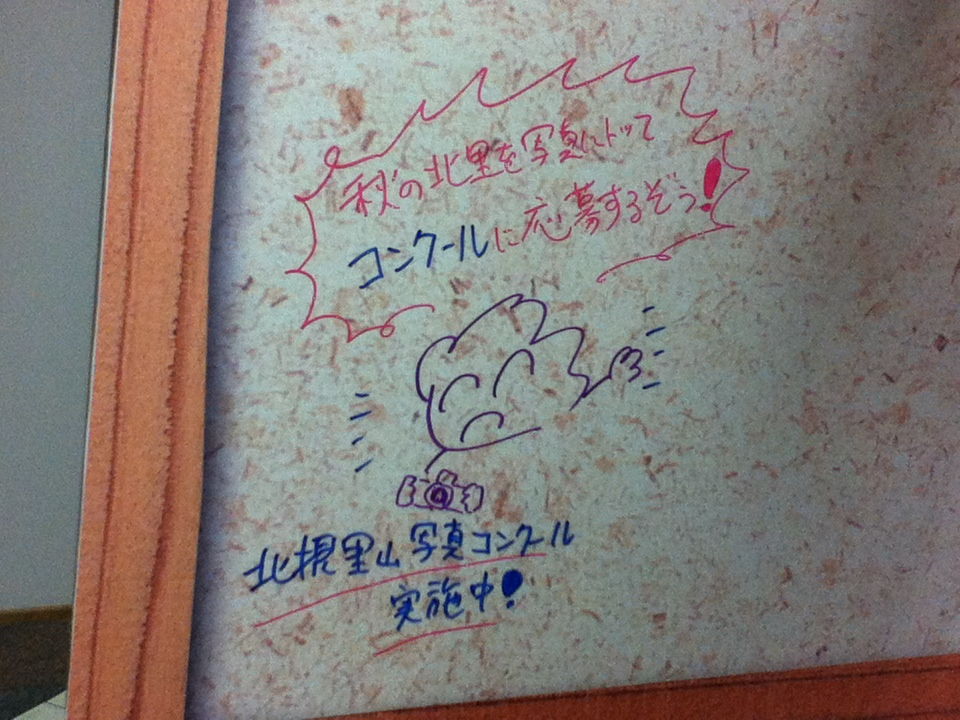 秋の北里を写真にトッて
コンクールに応募するぞぅ!
北摂里山写真コンクール
実施中!